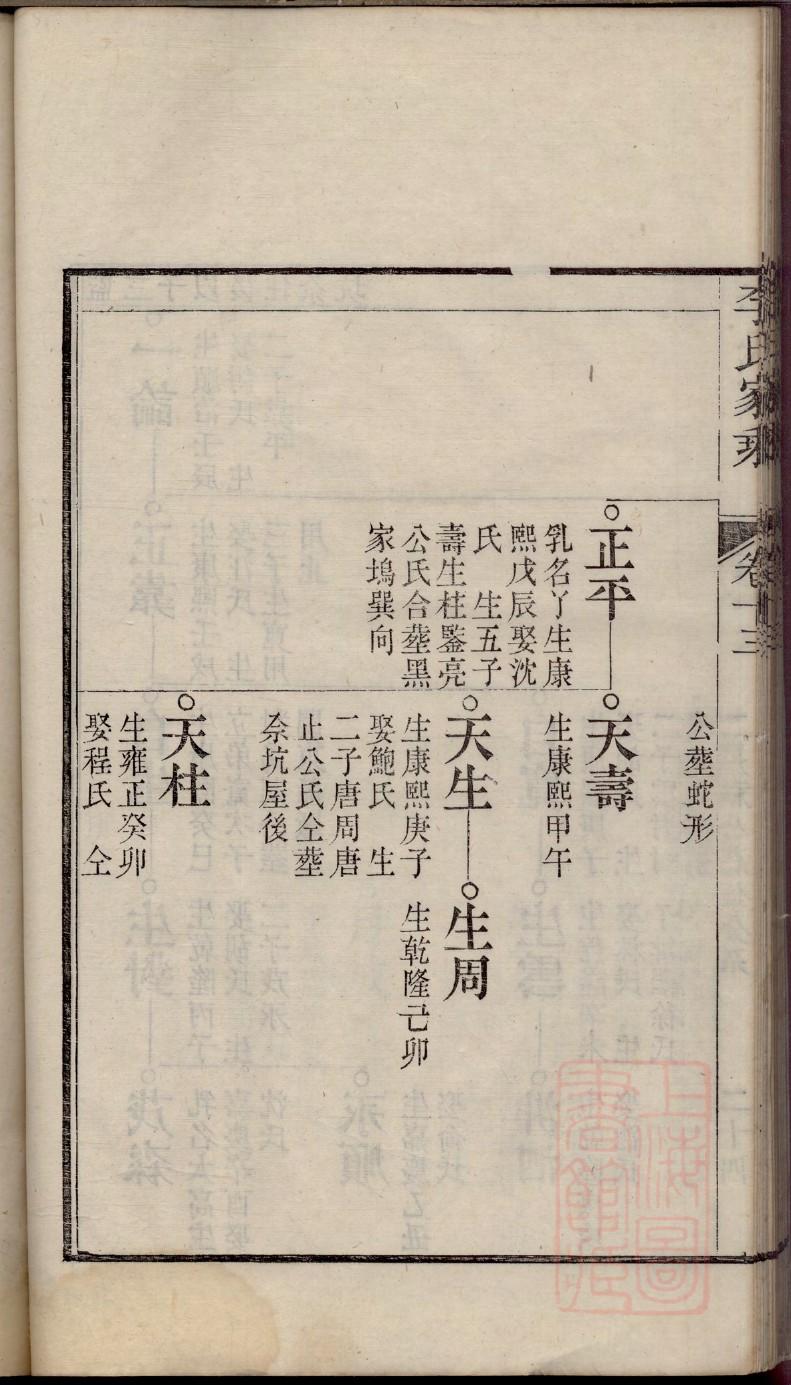 李氏家乘
卷十三
公塟蛇形
正平
乳名丫生康
熙戊辰娶沈
氏　生五子
壽生柱鑒亮
公氏合塟黑
家塢巽向
天壽
生康熙甲午
天生
生康熙庚子
娶鮑氏　生
二子唐周唐
止公氏仝塟
佘坑屋後
生周
生乾隆己卯
天柱
生雍正癸卯
娶程氏　仝
上海圖書館藏